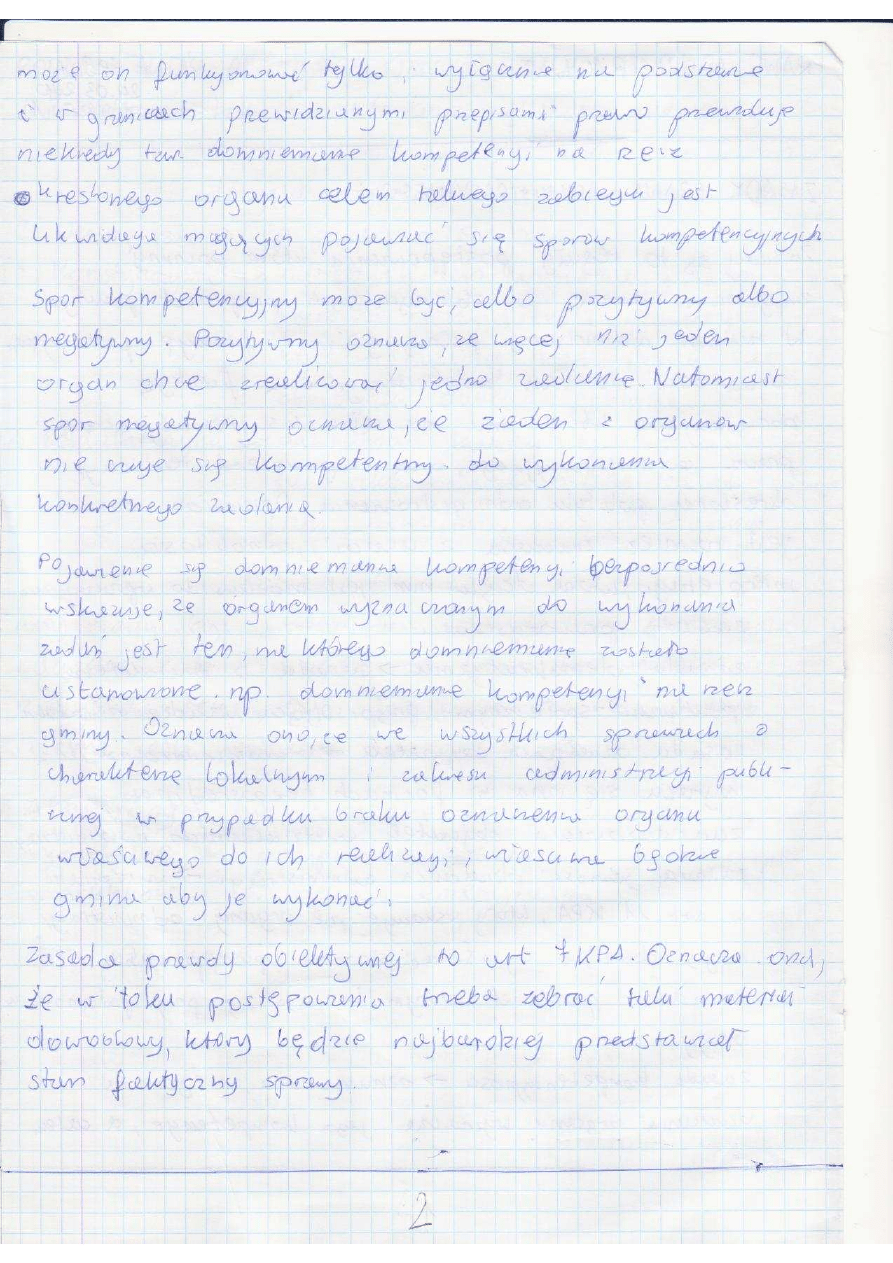 może on funkcjonować tylko i wyłącznie na podstawie
i w granicach prewidzianymi przepisami prawo przewiduje
niekiedy tzw. domniemanie kompetencji na rzecz
określonego organu celem takiego zabiegu jest
likwidacja mogących pojawiać się sporów kompetencyjnych
Spór kompetencyjny może być, albo pozytywny albo
negatywny. Pozytywny oznacza, że więcej niż jeden
organ chce zrealizować jedno zadanie. Natomiast
spór negatywny oznacza, że żaden z organów
nie czuje się kompetentny do wykonania
konkretnego zadania.
Pojawienie się domniemania kompetencji bezpośrednio
wskazuje, że organem wyznaczonym do wykonania
zadań jest ten, na którego domniemanie zostało
ustanowione. np. domniemanie kompetencji na rzecz
gminy. Oznacza ono, że we wszystkich sprawach o
charakterze lokalnym i zakresu administracji publi-
cznej w przypadku braku oznaczenia organu
właściwego do ich realizacji, właściwa będzie
gmina aby je wykonać.
Zasada prawdy obiektywnej to art 7 KPA. Oznacza ona,
że w toku postępowania trzeba zebrać taki materiał
dowodowy, który będzie najbardziej przedstawiał
stan faktyczny sprawy.
2